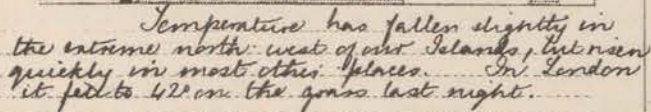 Temperature has fallen slightly in
the extreme north west of our Islands, but risen
quickly in most other places. In London
it fell to 42° on the grass last night.